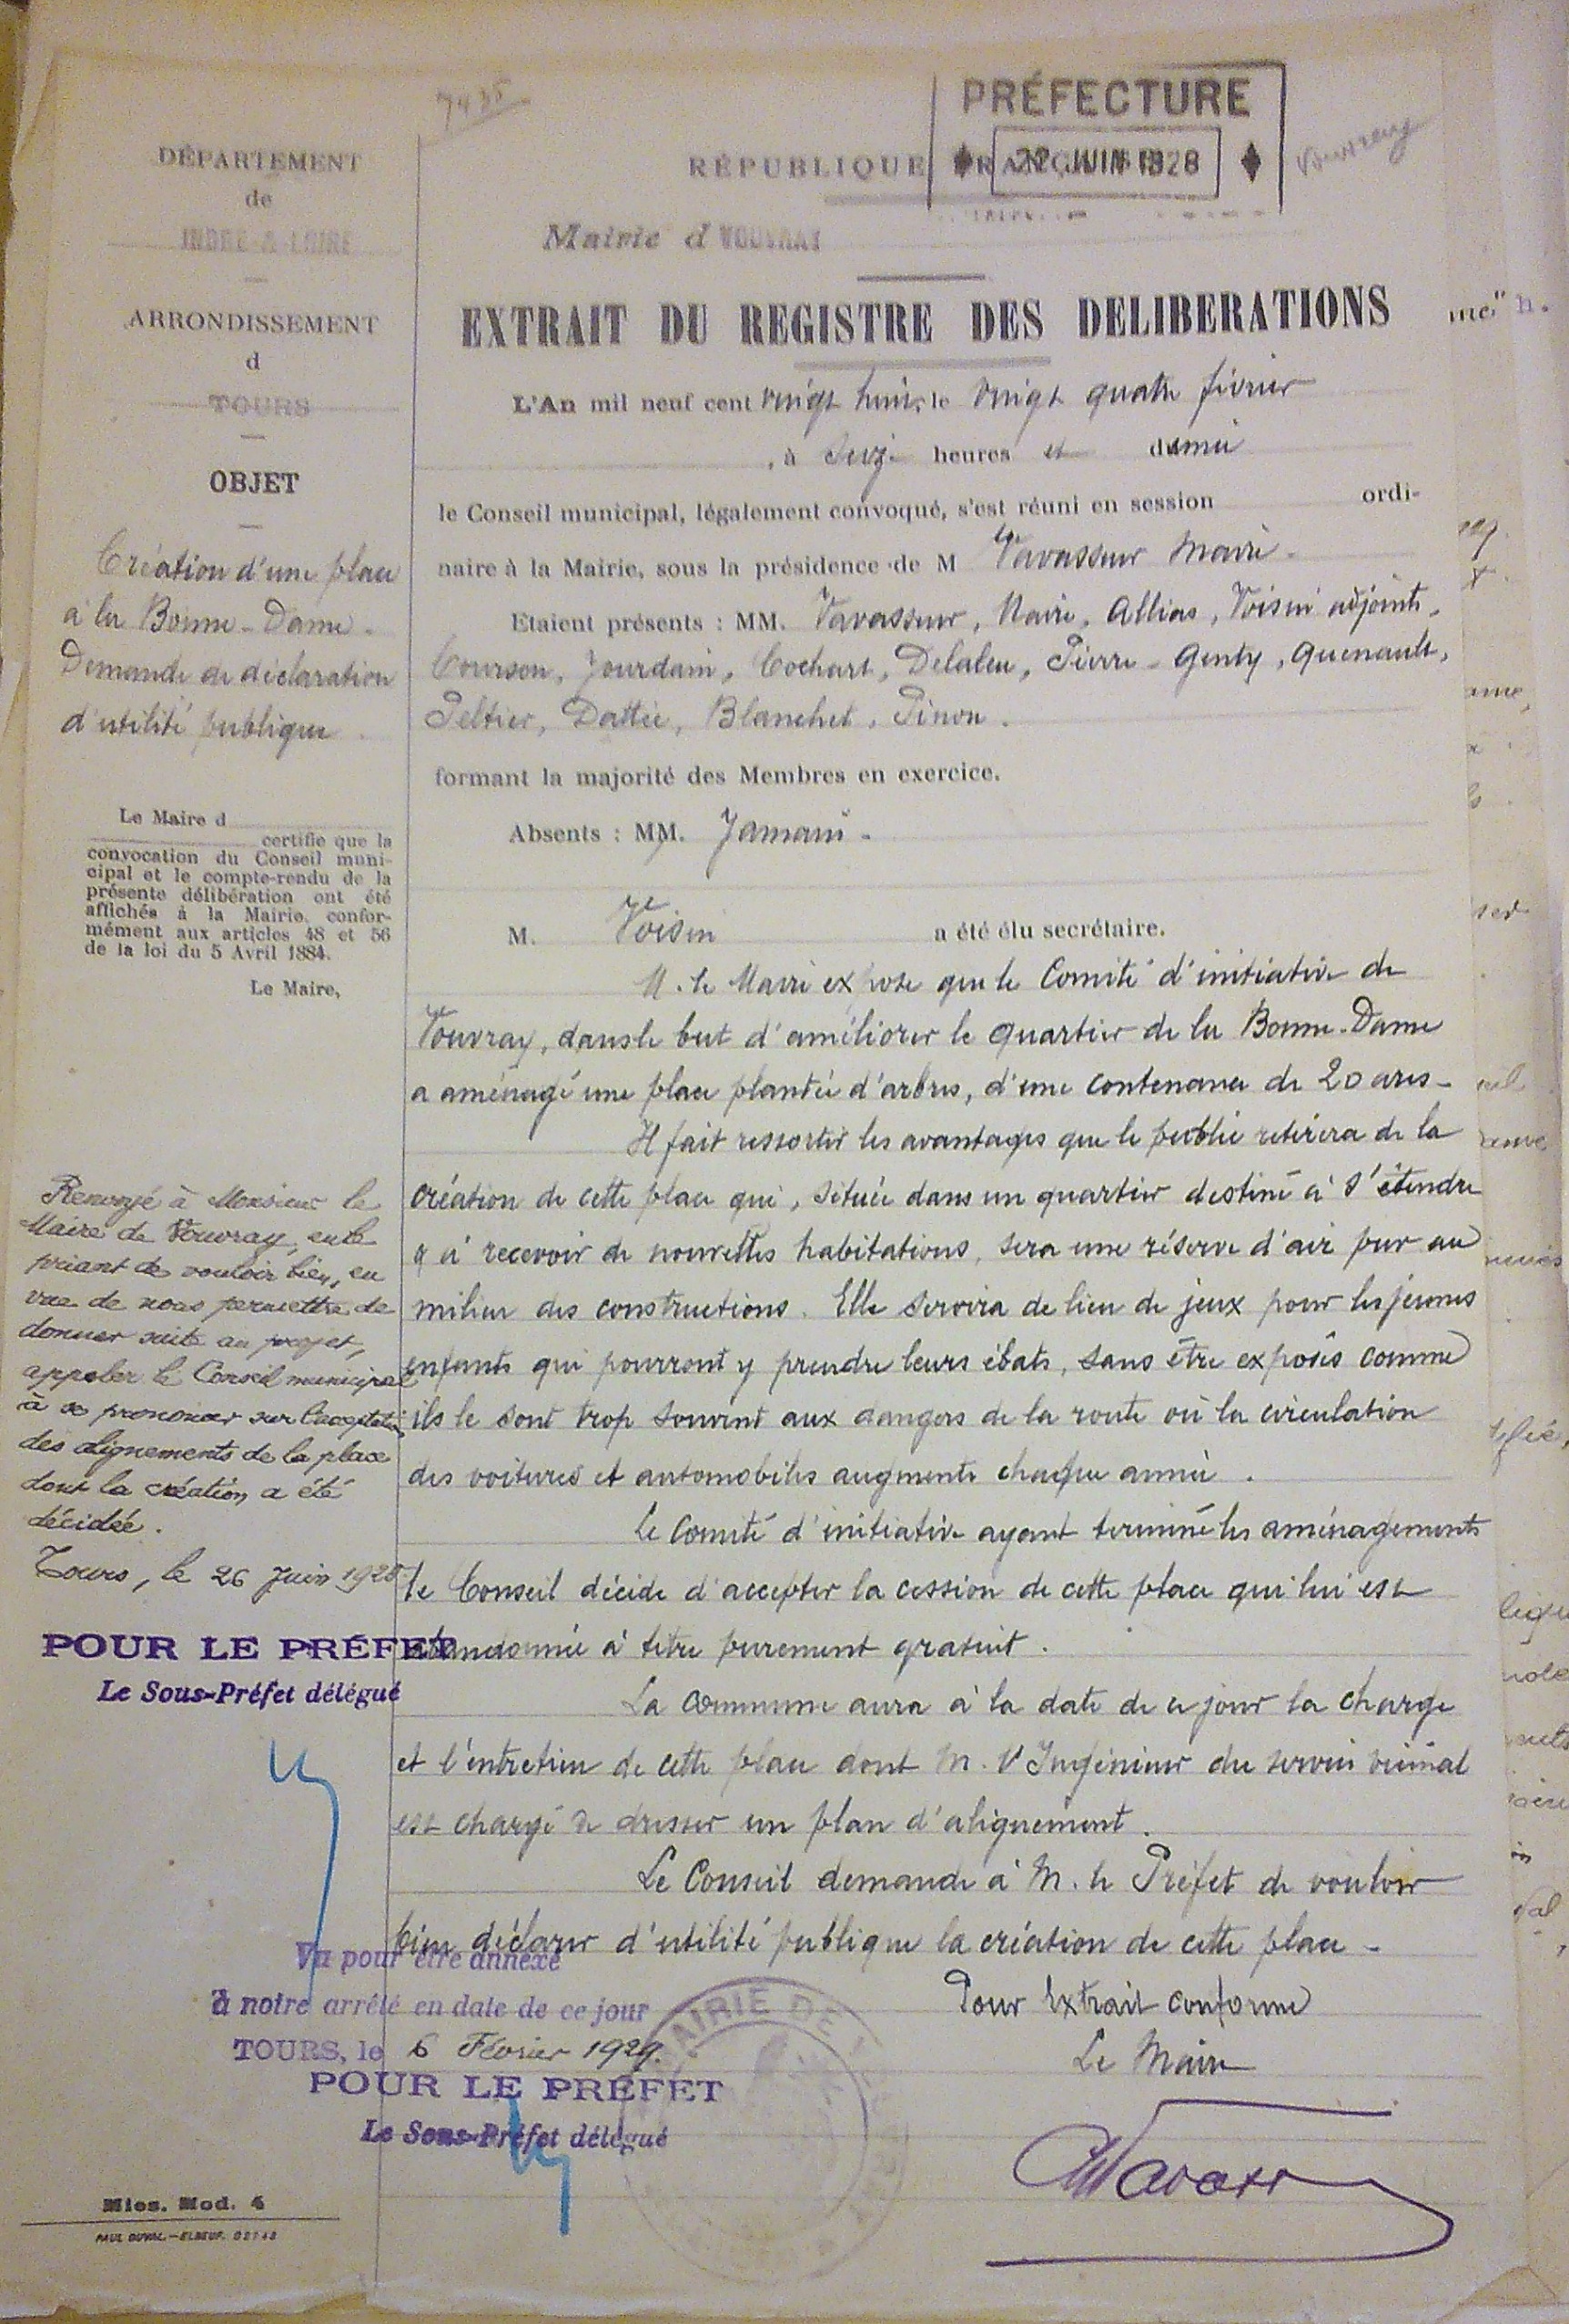 7435
PRÉFECTURE
22 JUIN 1928
Vouvray
DÉPARTEMENT
de
INDRE-&-LOIRE
ARRONDISSEMENT
d
TOURS
OBJET
Création d'une place
à la Bonne-Dame -
Demande de déclaration
d'utilité publique
Le Maire d
certifie que la
convocation du Conseil muni-
cipal et le compte-rendu de la
présente délibération ont été
affichés à la Mairie, confor-
mément aux articles 48 et 56
de la loi du 5 Avril 1884.
Le Maire,
Renvoyé à Monsieur le
Maire de Vouvray, en le
priant de vouloir bien, en
vue de nous permettre de
donner suite au projet,
appeler le Conseil municipal
à se prononcer sur l'acceptation
des alignements de la place
dont la création a été
décidée.
Tours, le 26 Juin 1928
POUR LE PRÉFET
Le Sous-Préfet délégué
RÉPUBLIQUE FRANÇAISE
Mairie d VOUVRAY
EXTRAIT DU REGISTRE DES DELIBERATIONS
L'An mil neuf cent vingt huit, le vingt quatre février
, à seize heures et demie
le Conseil municipal, légalement convoqué, s'est réuni en session ordi-
naire à la Mairie, sous la présidence de M Vavasseur Maire -
Etaient présents : MM. Vavasseur, Maire, Allias, Voisin adjoints,
Courson, Jourdain, Cochart, Delaleu, Pierre-Genty, Quenault,
Peltier, Dattée, Blanchet, Pinon.
formant la majorité des Membres en exercice.
Absents : MM.
M. Voisin a été élu secrétaire.
M. le Maire expose que le Comité d'initiative de
Vouvray, dans le but d'améliorer le quartier de la Bonne-Dame
a aménagé une place plantée d'arbres, d'une contenance de 20 ares -
Il fait ressortir les avantages que le public retirera de la
création de cette place qui, située dans un quartier destiné à s'étendre
& à recevoir de nouvelles habitations, sera une réserve d'air pur au
milieu des constructions. Elle servira de lieu de jeux pour les jeunes
enfants qui pourront y prendre leurs ébats, sans être exposés comme
ils le sont trop souvent aux dangers de la route où la circulation
des voitures et automobiles augmente chaque année.
Le Comité d'initiative ayant terminé les aménagements
le Conseil décide d'accepter la cession de cette place qui lui est
abandonnée à titre purement gratuit.
La commune aura à la date de ce jour la charge
et l'entretien de cette place dont M. l'Ingénieur du service vicinal
est chargé de dresser un plan d'alignement.
Le Conseil demande à M. le Préfet de vouloir
bien déclarer d'utilité publique la création de cette place -
Pour Extrait conforme
Le Maire
Vu pour être annexé
à notre arrêté en date de ce jour
TOURS, le 6 Février 1929.
POUR LE PRÉFET
Le Sous-Préfet délégué
MAIRIE DE
Mies. Mod. 4
PAUL DUVAL.—ELBEUF.